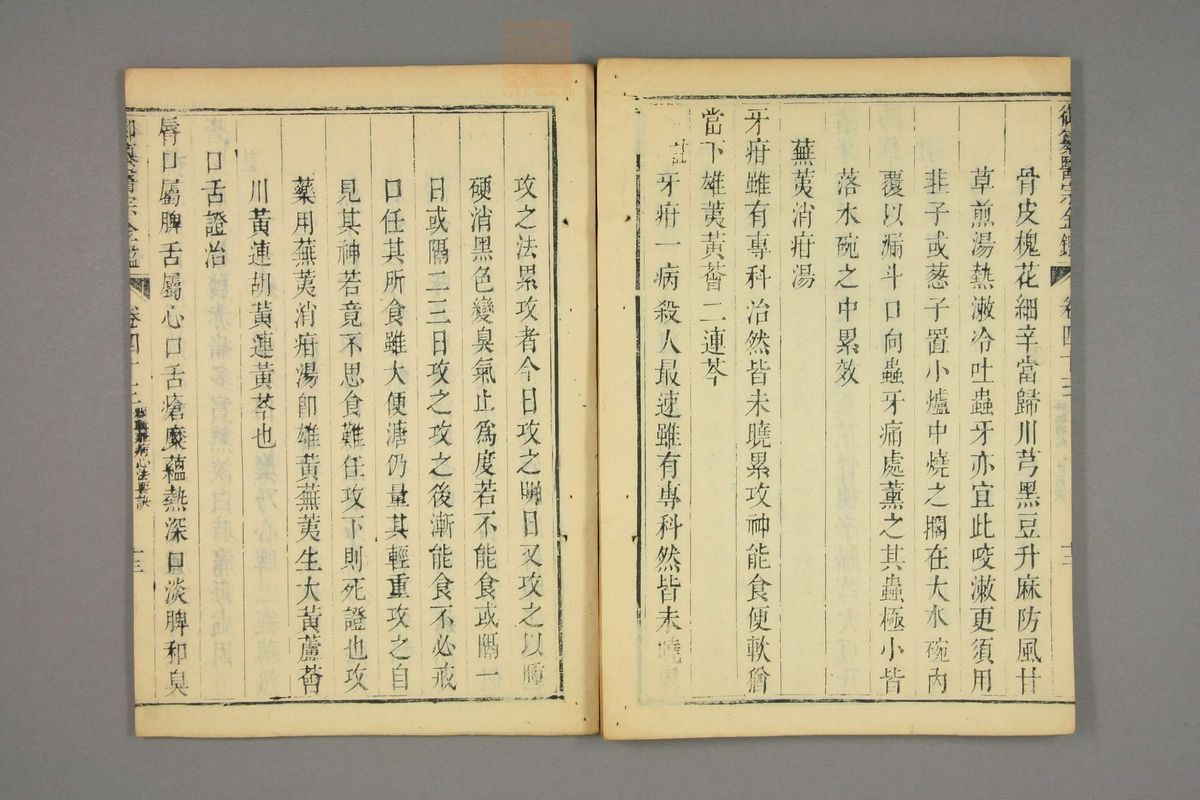 御纂醫宗金鑑 卷四十三 十三
骨皮槐花細辛當歸川芎黑豆升麻防風甘
草煎湯熱漱冷吐蟲牙亦宜此咬漱更須用
韭子或葱子置小爐中燒之擱在大水碗內
覆以漏斗口向蟲牙痛處薰之其蟲極小皆
落水碗之中累效
蕪荑消疳湯
牙疳雖有專科治然皆未曉累攻神能食便軟猶
當下雄荑黃薈二連芩
註牙疳一病殺人最速雖有專科然皆未曉
攻之法累攻者今日攻之明日又攻之以腫
硬消黑色變臭氣止為度若不能食或隔一
日或隔二三日攻之攻之後漸能食不必戒
口任其所食雖大便溏仍量其輕重攻之自
見其神若竟不思食難任攻下則死證也攻
藥用蕪荑消疳湯卽雄黃蕪荑生大黃蘆薈
川黃連胡黃連黃芩也
口舌證治
唇口屬脾舌屬心口舌瘡糜蘊熱深口淡脾和臭
御纂醫宗金鑑 卷四十三 雜病心法要訣 十三